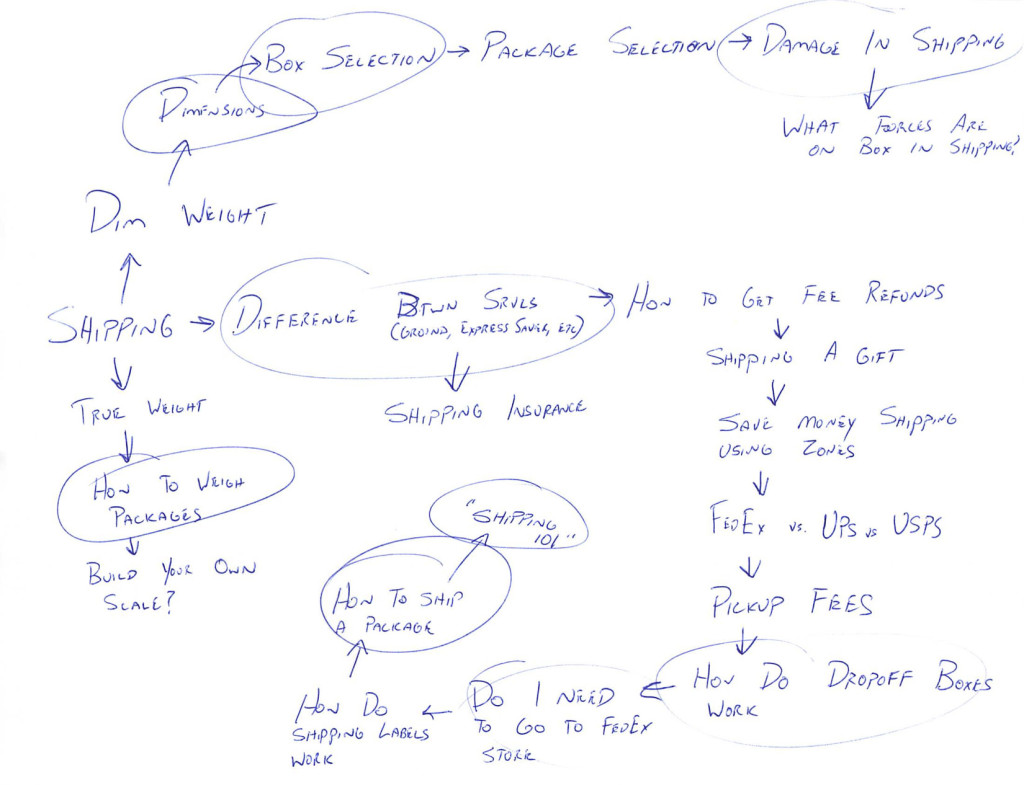 Box Selection → Package Selection → Damage In Shipping
Dimensions
What Forces Are
on Box in Shipping?
Dim Weight
Shipping → Difference Btwn Srvcs → How to Get Fee Refunds
(Ground, Express Saver, etc)
Shipping A Gift
True Weight
Shipping Insurance
Save Money Shipping
using Zones
How To Weigh
Packages
"Shipping
101"
FedEx vs. UPS vs USPS
Build Your Own
Scale?
How To Ship
a Package
Pickup Fees
How Do Dropoff Boxes
Work
Do I Need
to Go to FedEx
Store
How Do
Shipping Labels
Work